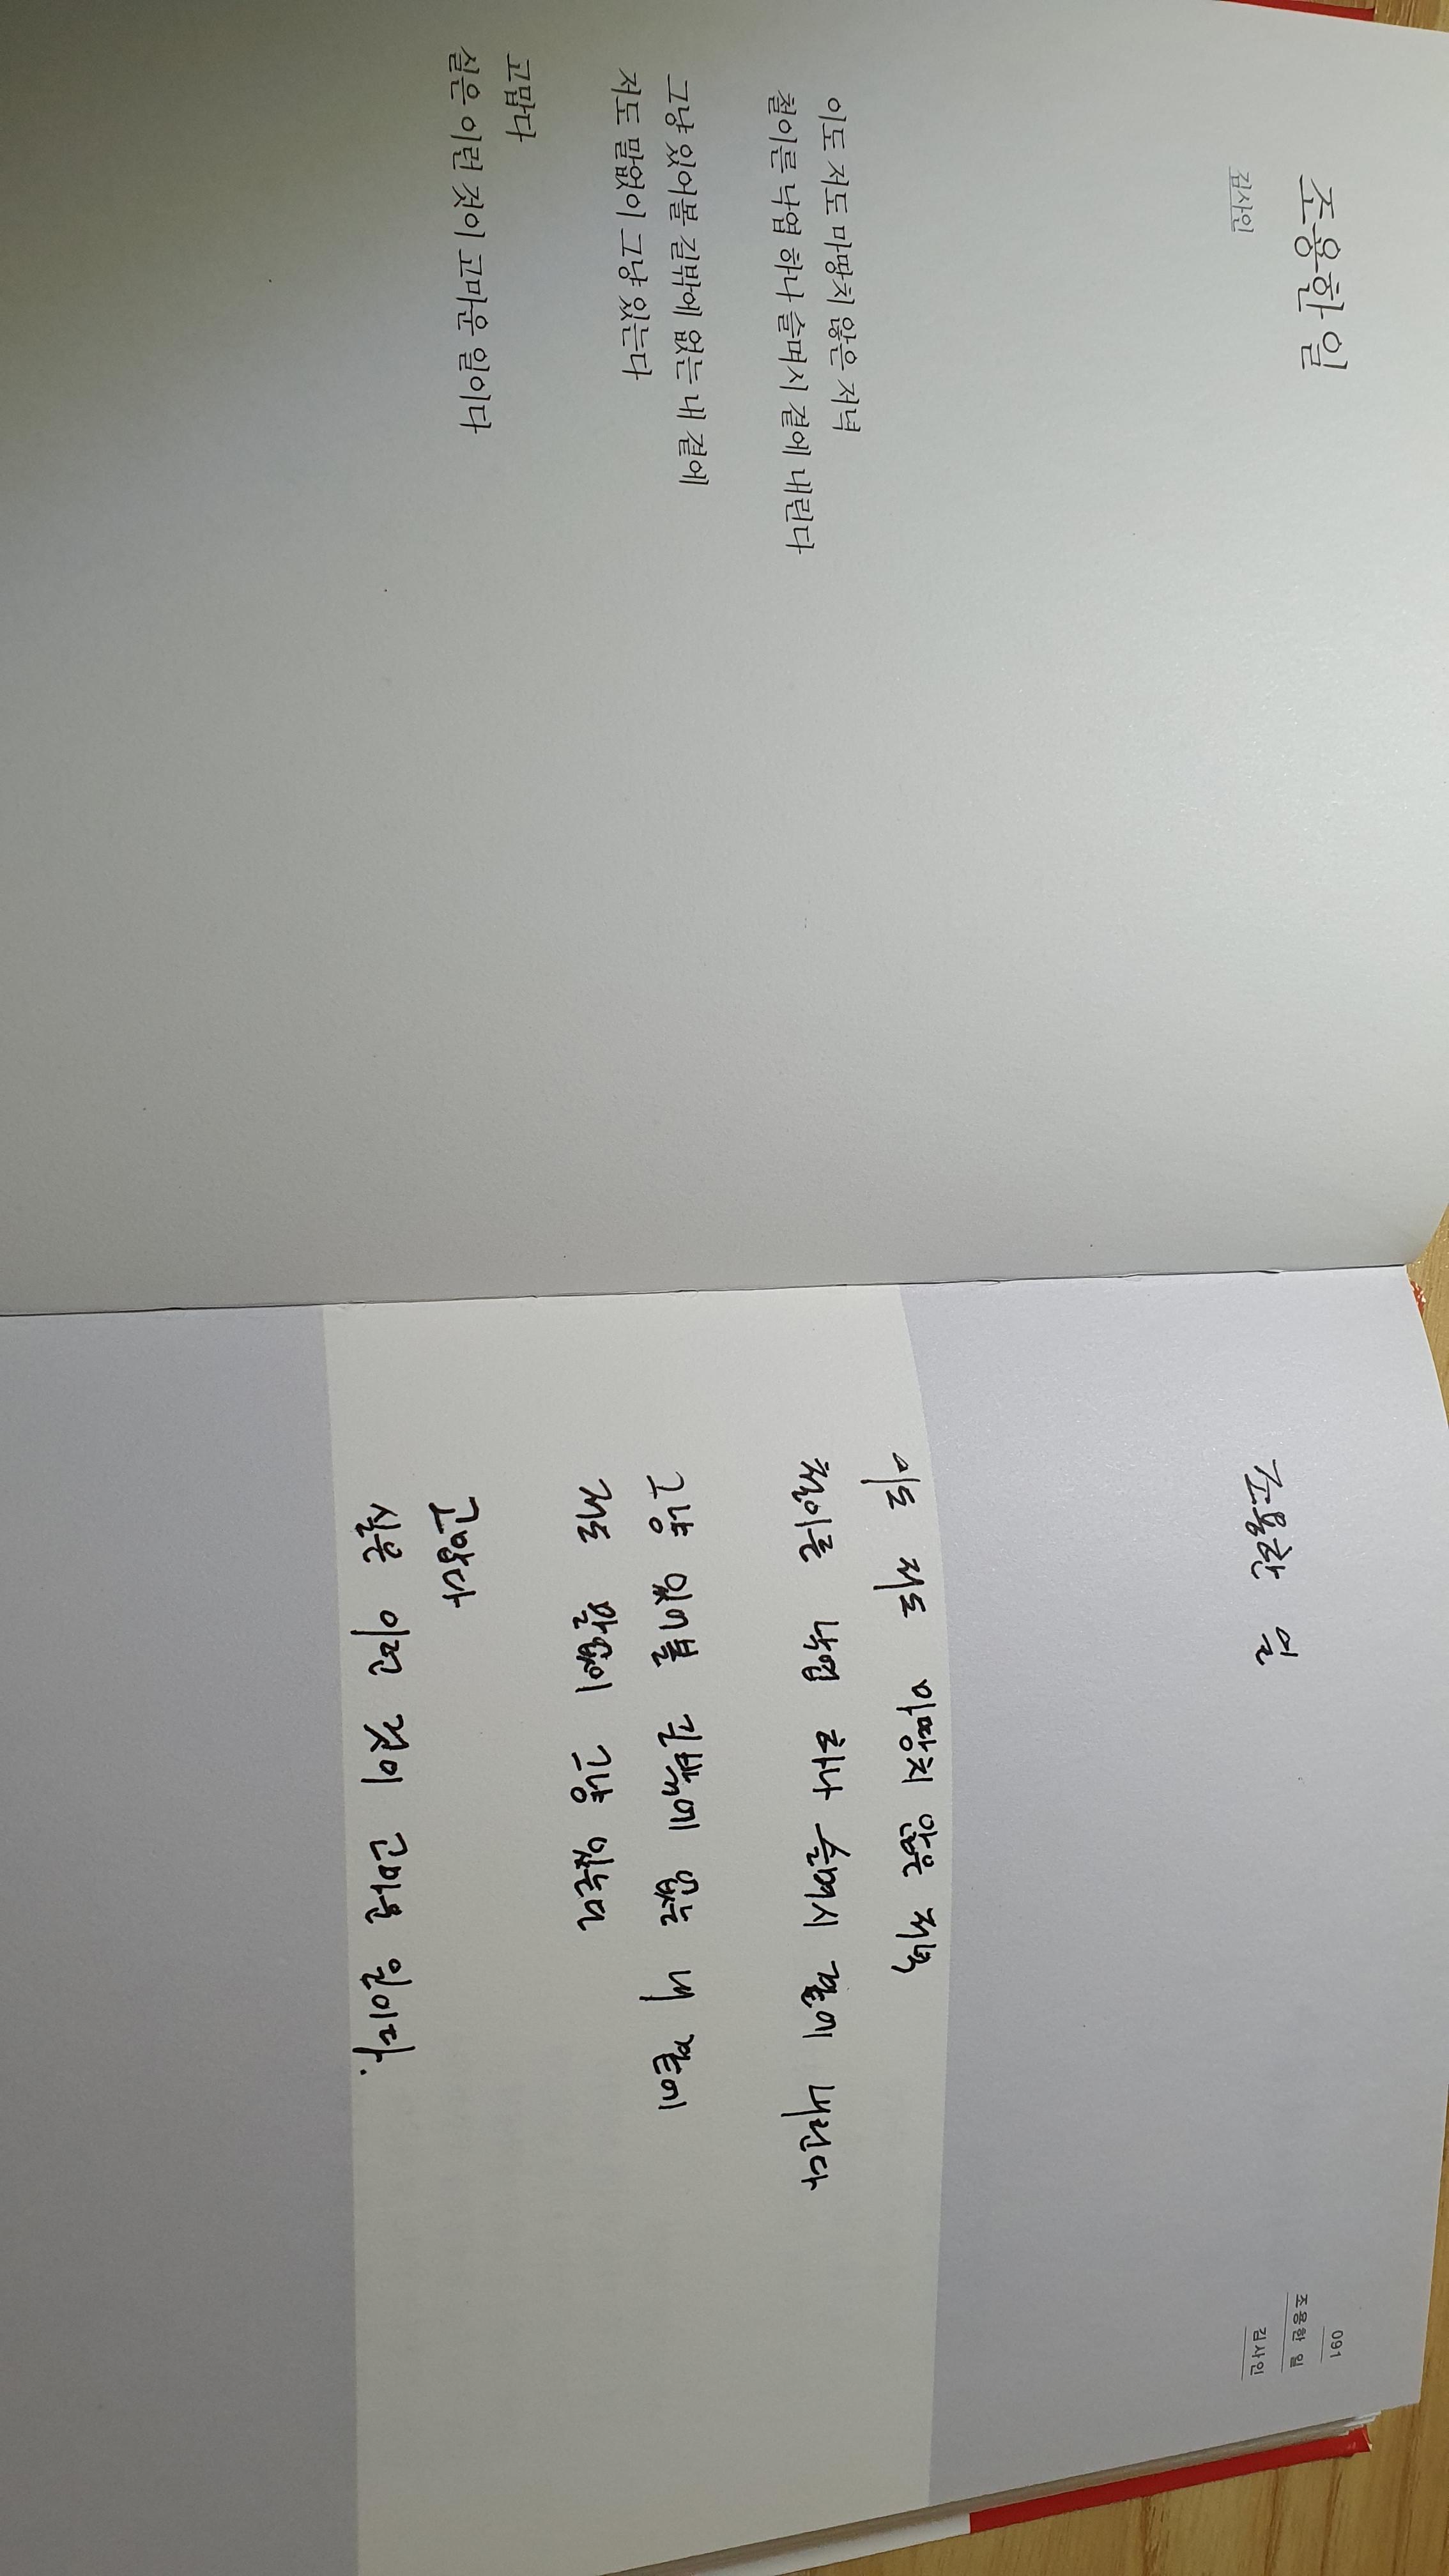 조용한 일
김사인
이도 저도 마땅치 않은 저녁
철이른 낙엽 하나 슬며시 곁에 내린다
그냥 있어볼 길밖에 없는 내 곁에
저도 말없이 그냥 있는다
고맙다
실은 이런 것이 고마운 일이다
091
조용한 일
김사인
조용한 일
이도 저도 마땅치 않은 저녁
철이른 낙엽 하나 슬며시 곁에 내린다
그냥 있어볼 길밖에 없는 내 곁에
저도 말없이 그냥 있는다
고맙다
실은 이런 것이 고마운 일이다.